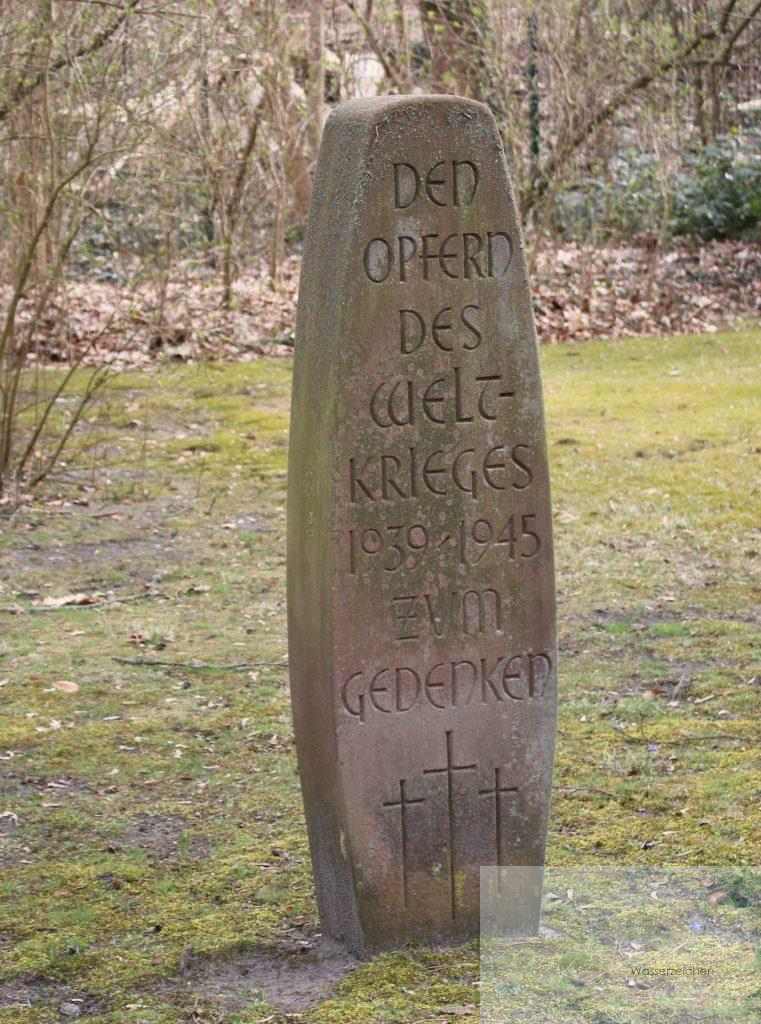 DEN
OPFERN
DES
WELT-
KRIEGES
1939-1945
ZUM
GEDENKEN
Wasserzeichen